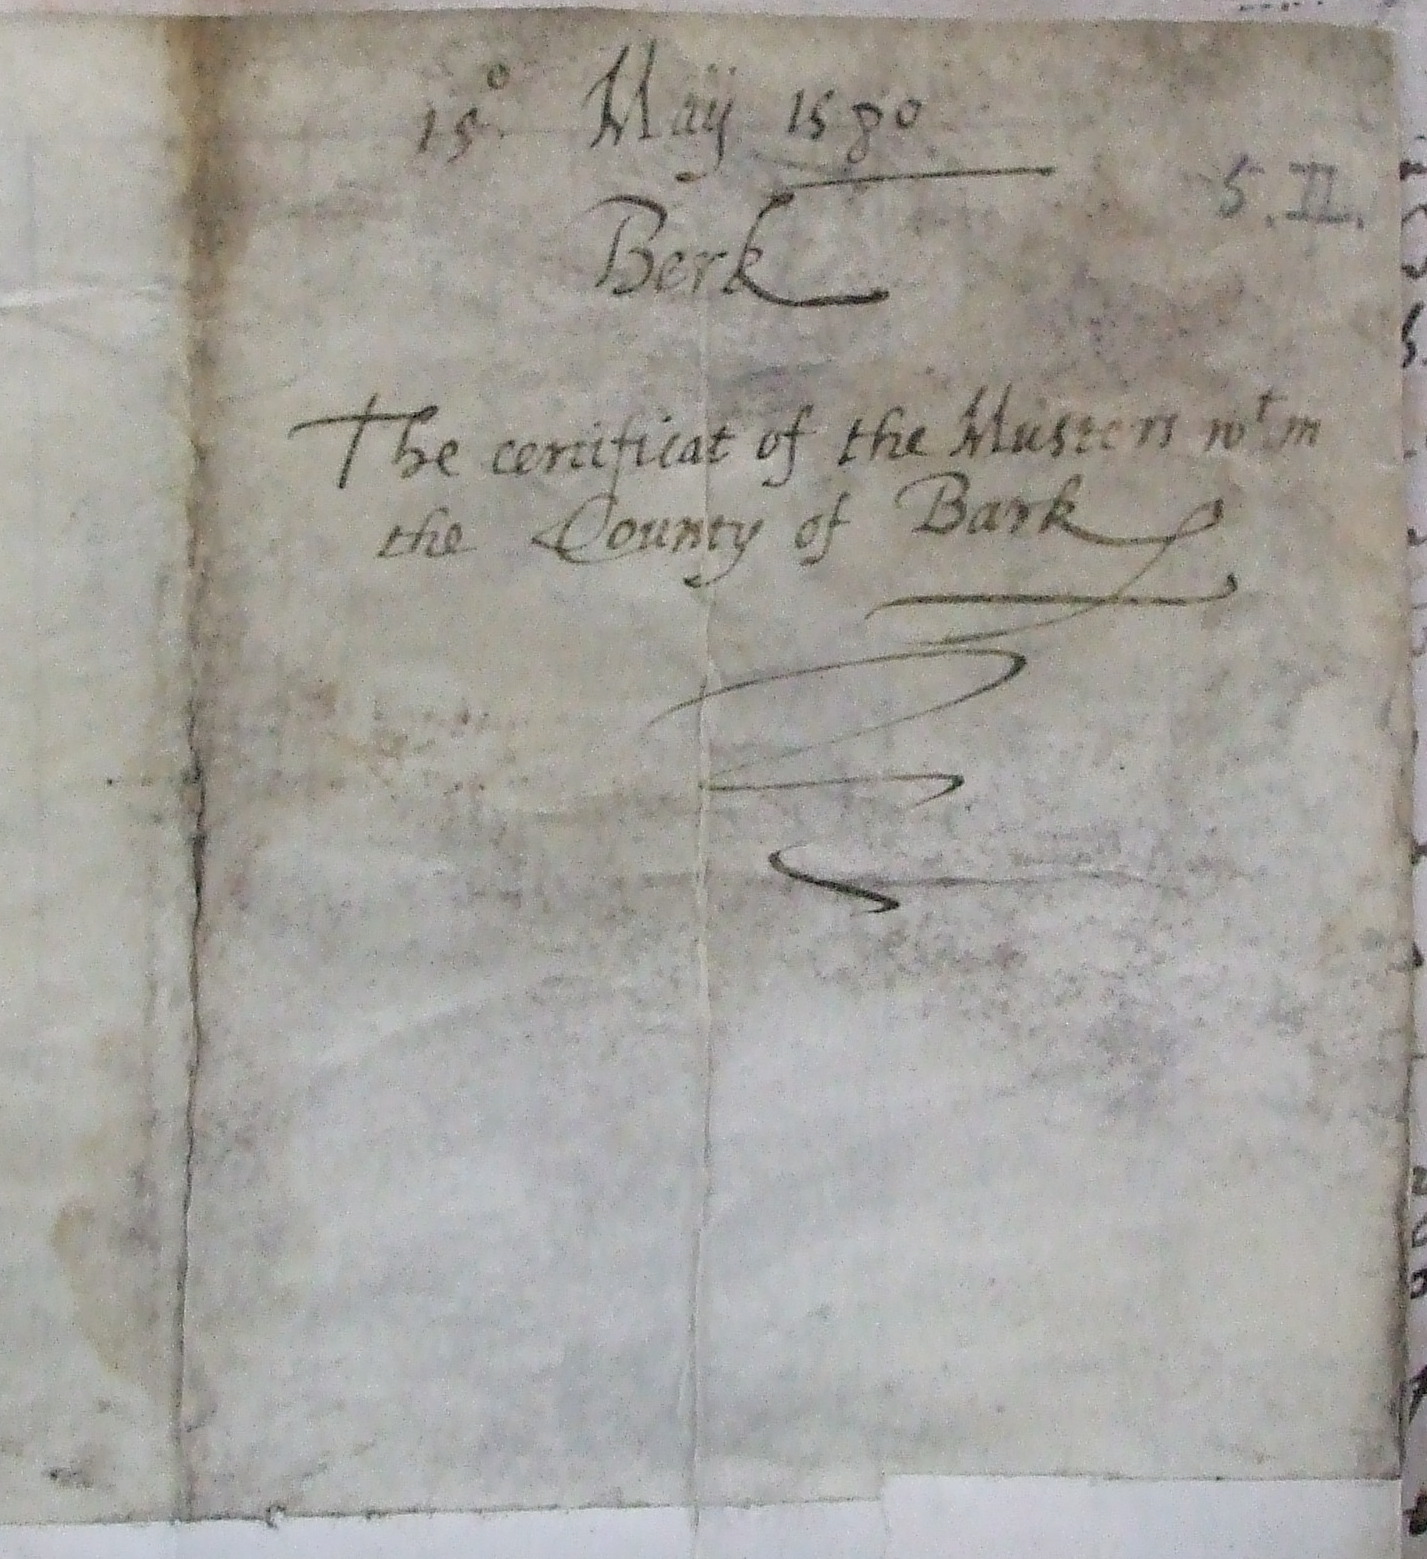 15º Maij 1580
5. II.
Berk
The certificat of the Musters wt.in
the County of Bark